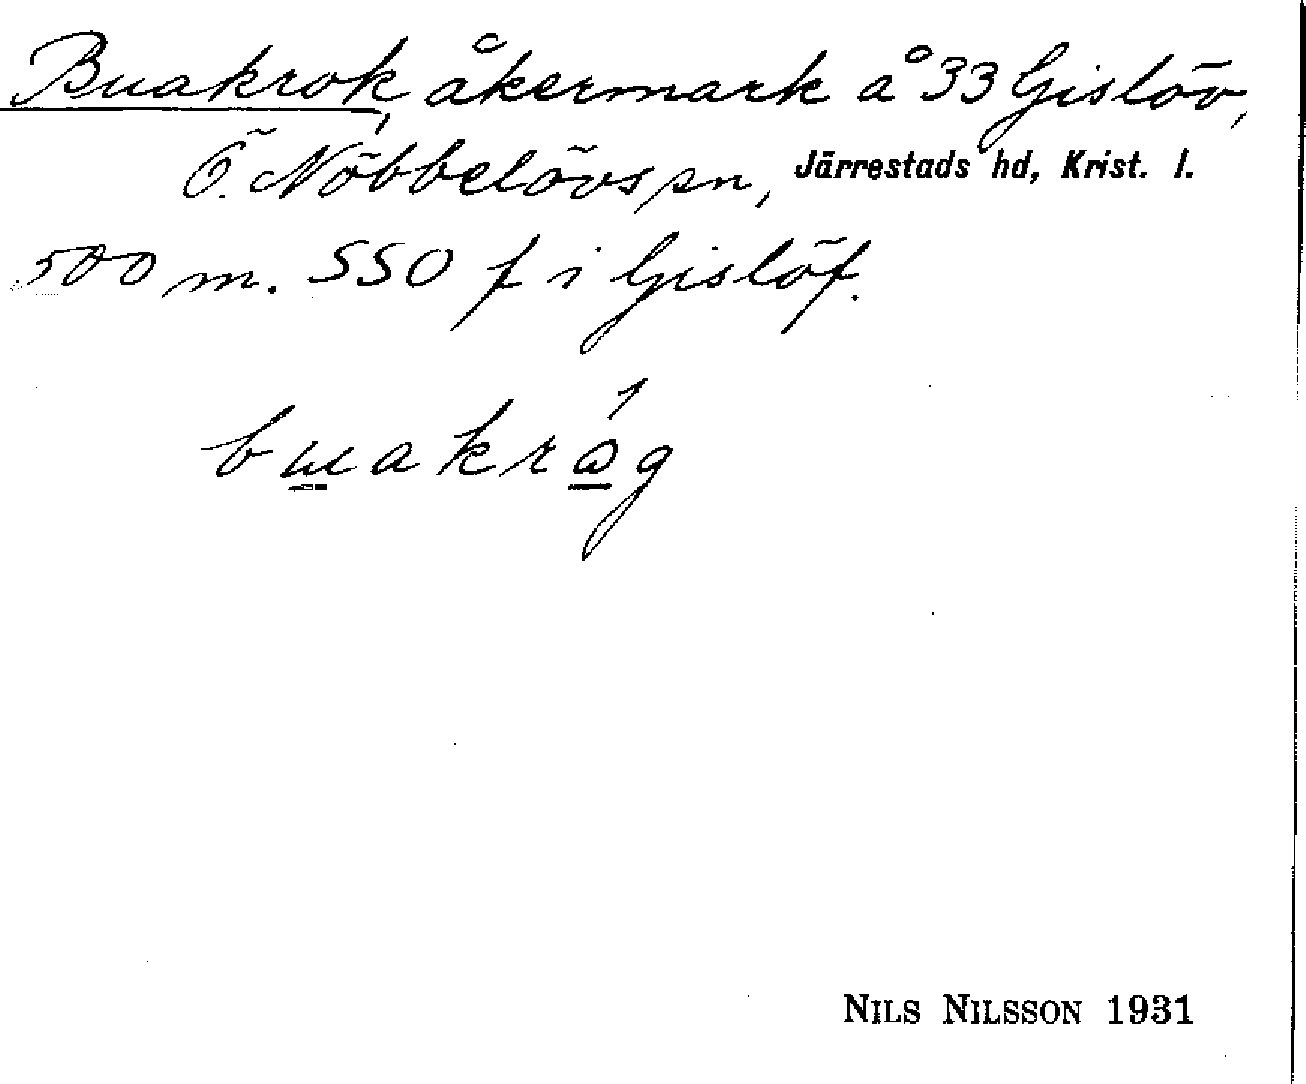 Buakrok, åkermark å 33 Gislöv,
Ö. Nöbbelövs sn, Järrestads hd, Krist. l.
500 m. SSO f i Gislöf.
buakrôg
NILS NILSSON 1931